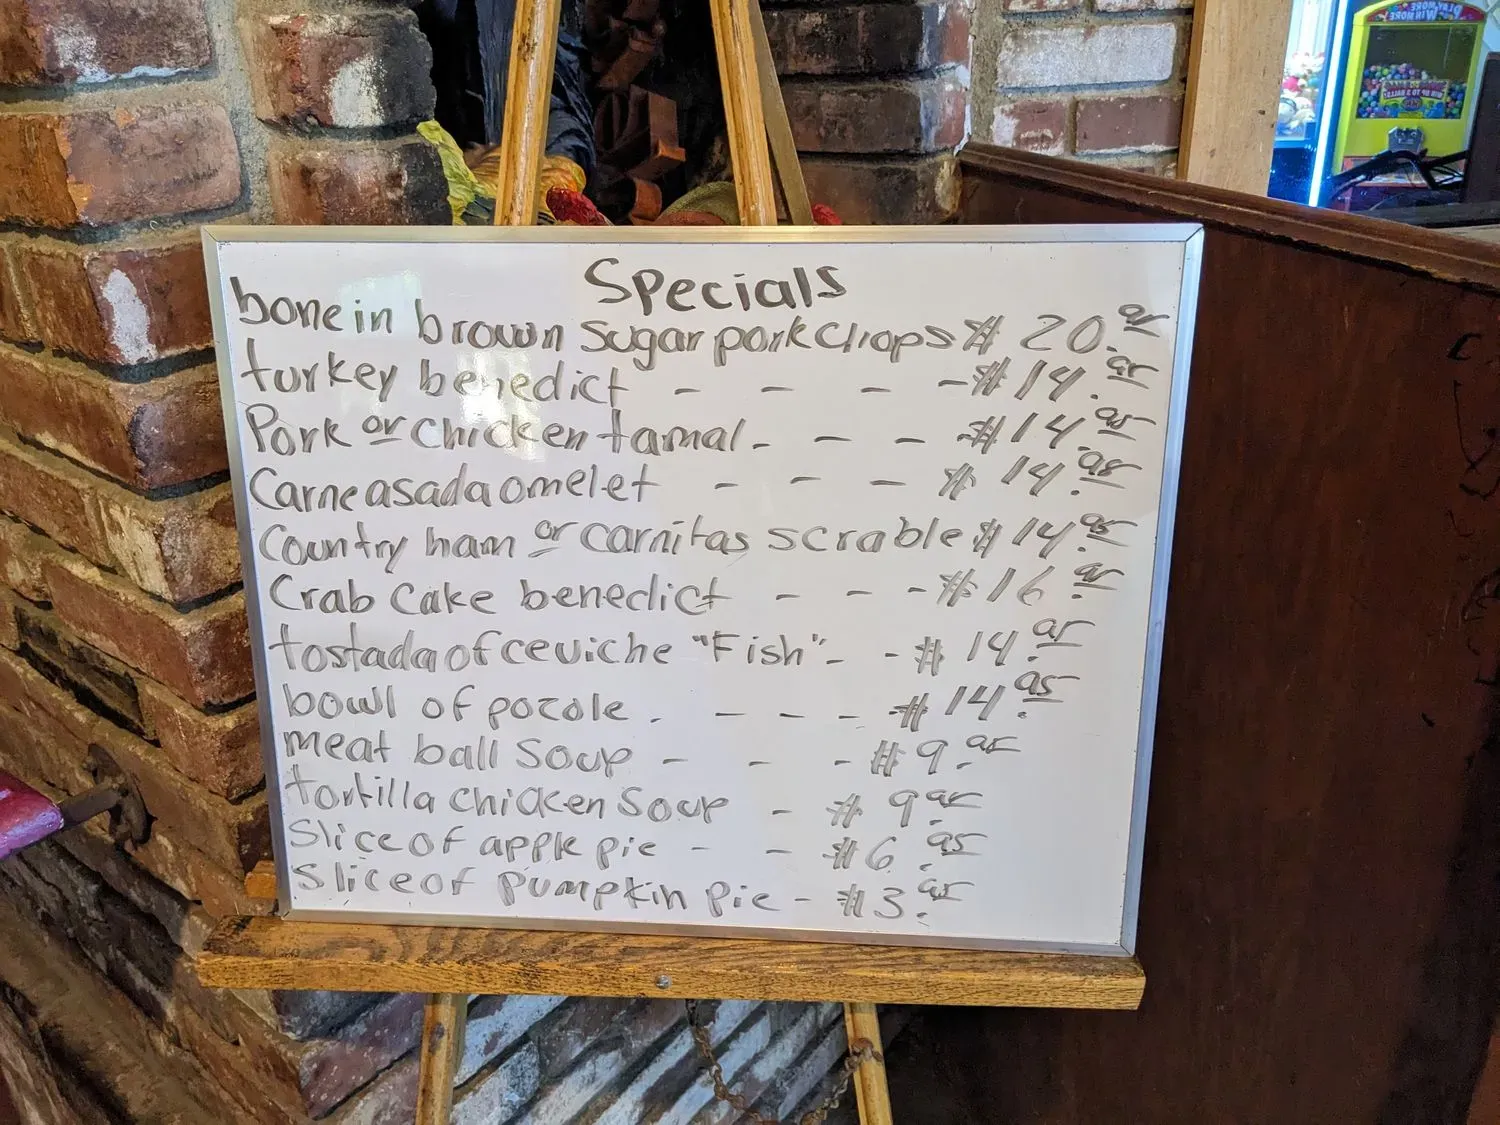 Specials
bone in brown sugar pork chops $20.95
turkey benedict - - - - $14.95
Pork or chicken tamal - - - - $14.95
Carne asada omelet - - - $14.95
Country ham or carnitas scrable $14.95
Crab cake benedict - - - $16.95
tostada of ceviche "Fish" - - $14.95
bowl of pozole . - - - - $14.95
meat ball soup - - - $9.95
tortilla chicken soup - $9.95
Slice of apple pie - - $6.95
Slice of pumpkin pie - $3.95
PLAY MORE
WIN MORE
WIN UP TO 3 BALLS!